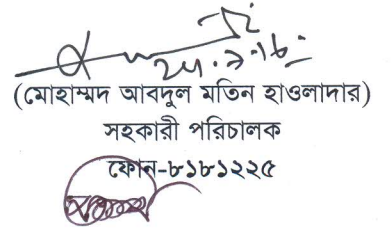 (মোহাম্মদ আবদুল মতিন হাওলাদার)
সহকারী পরিচালক
ফোন-৮১৮১২২৫